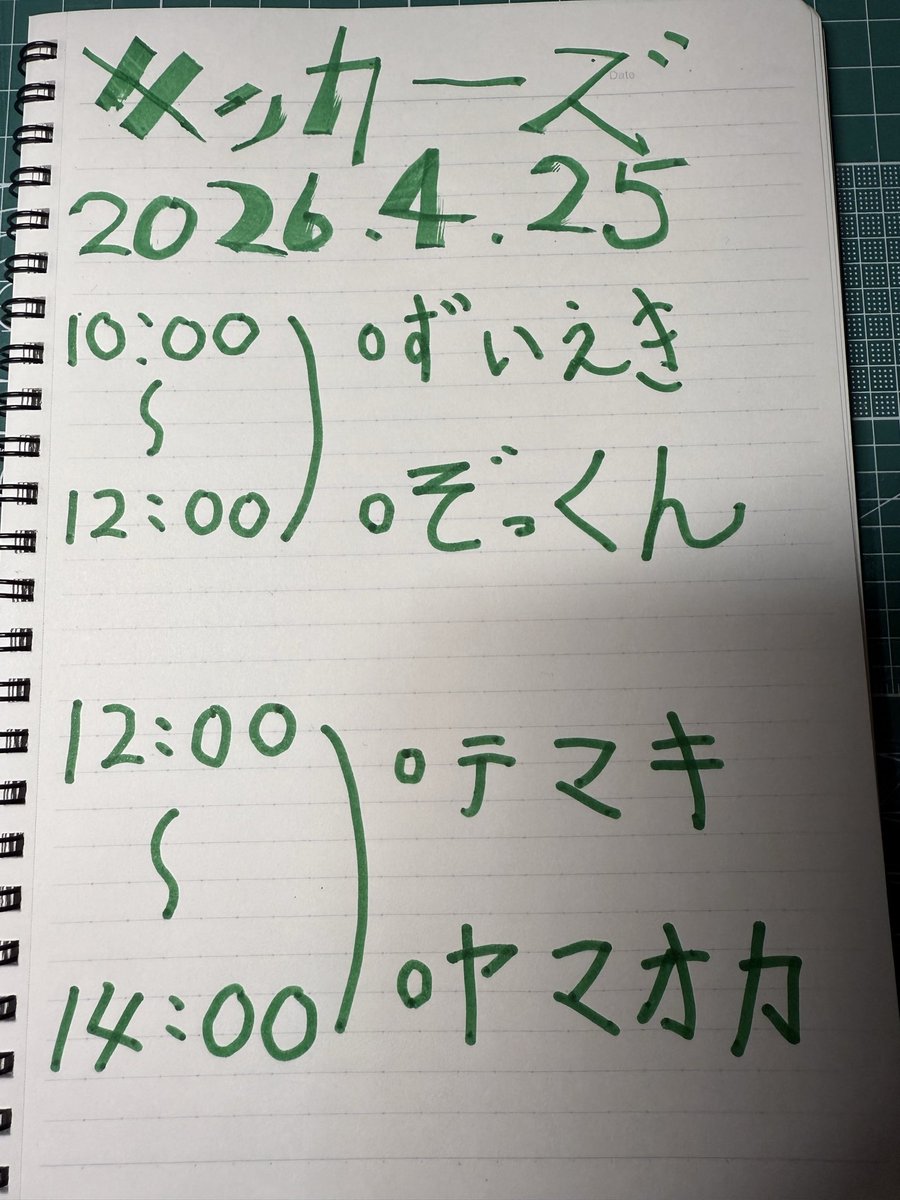 キッカーズ
Date
2026.4.25
10:00
〜
12:00
○ずいえき
○ぞっくん
12:00
〜
14:00
○テマキ
○ヤマオカ